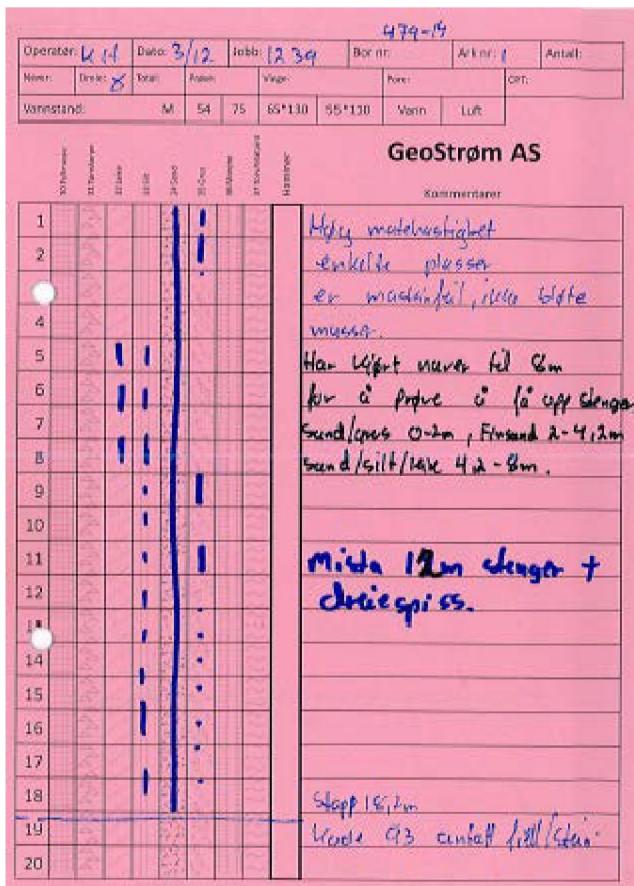 479-19
Operatør: KH Dato: 3/12 Jobb: 1239 Bor nr: Ark nr: 1 Antall:
Naver: Dreie: X Total: Prøver: Vinge: Pore: CPT:
Vannstand: M 54 75 65*130 55*110 Vann Luft
GeoStrøm AS
Kommentarer
32 Leire
33 Silt
34 Sand
35 Grus
Hammer
1
2
4
5
6
7
8
9
10
11
12
13
14
15
16
17
18
19
20
Høy matehastighet
enkelte plasser
er maskinfeil, ikke bløte
masser.
Har kjørt naver til 8m
for å prøve å få opp stenger
Sand/grus 0-2m, Finsand 2-4,2m
sand/silt/leire 4,2-8m.
Mista 12m stenger +
dreiespiss.
Stopp 18,2m
Kode 93 antatt fjell/stein